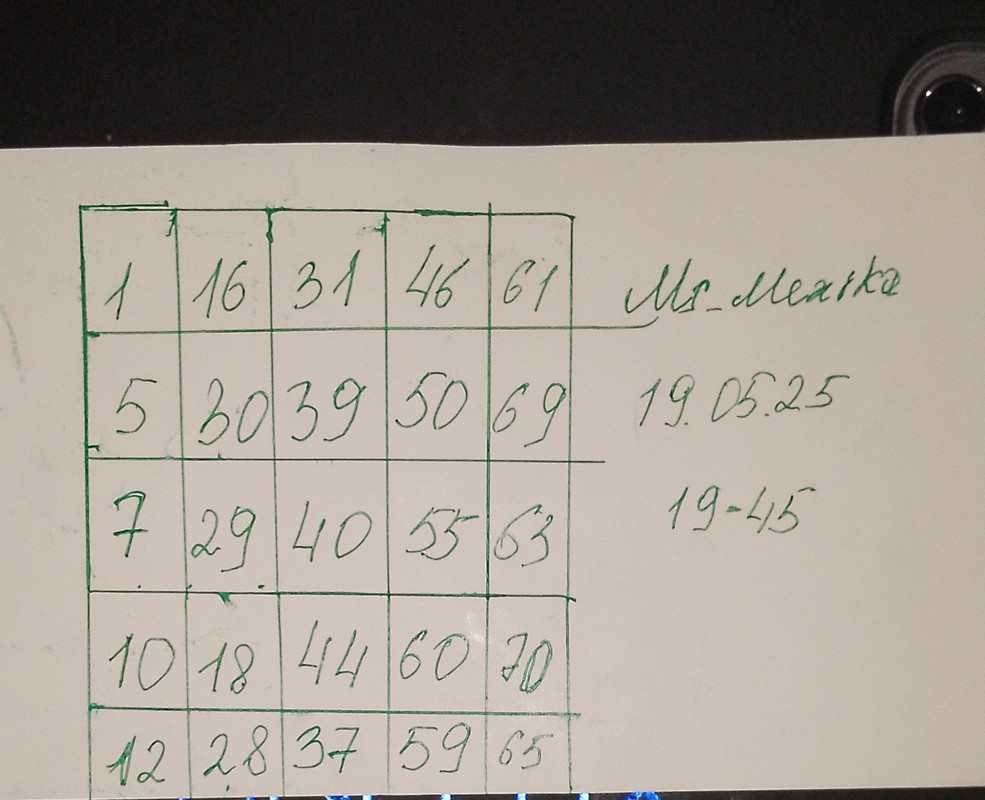 1 16 31 46 61
5 30 39 50 69
7 29 40 55 63
10 18 44 60 70
12 28 37 59 65
19.05.25
19-45